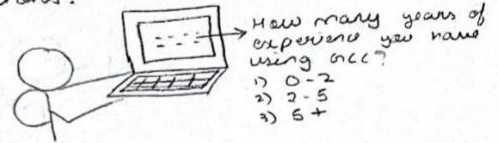 How many years of
experience you have
using GCC?
1) 0-2
2) 2-5
3) 5+